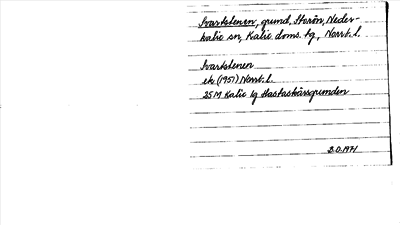 Svartstenen, grund, Storön, Neder-
kalix sn, Kalix doms. tg, Norrb. l.
Svartstenen
ek. (1957) Norrb. l.
25M Kalix lg
B.O. 1971